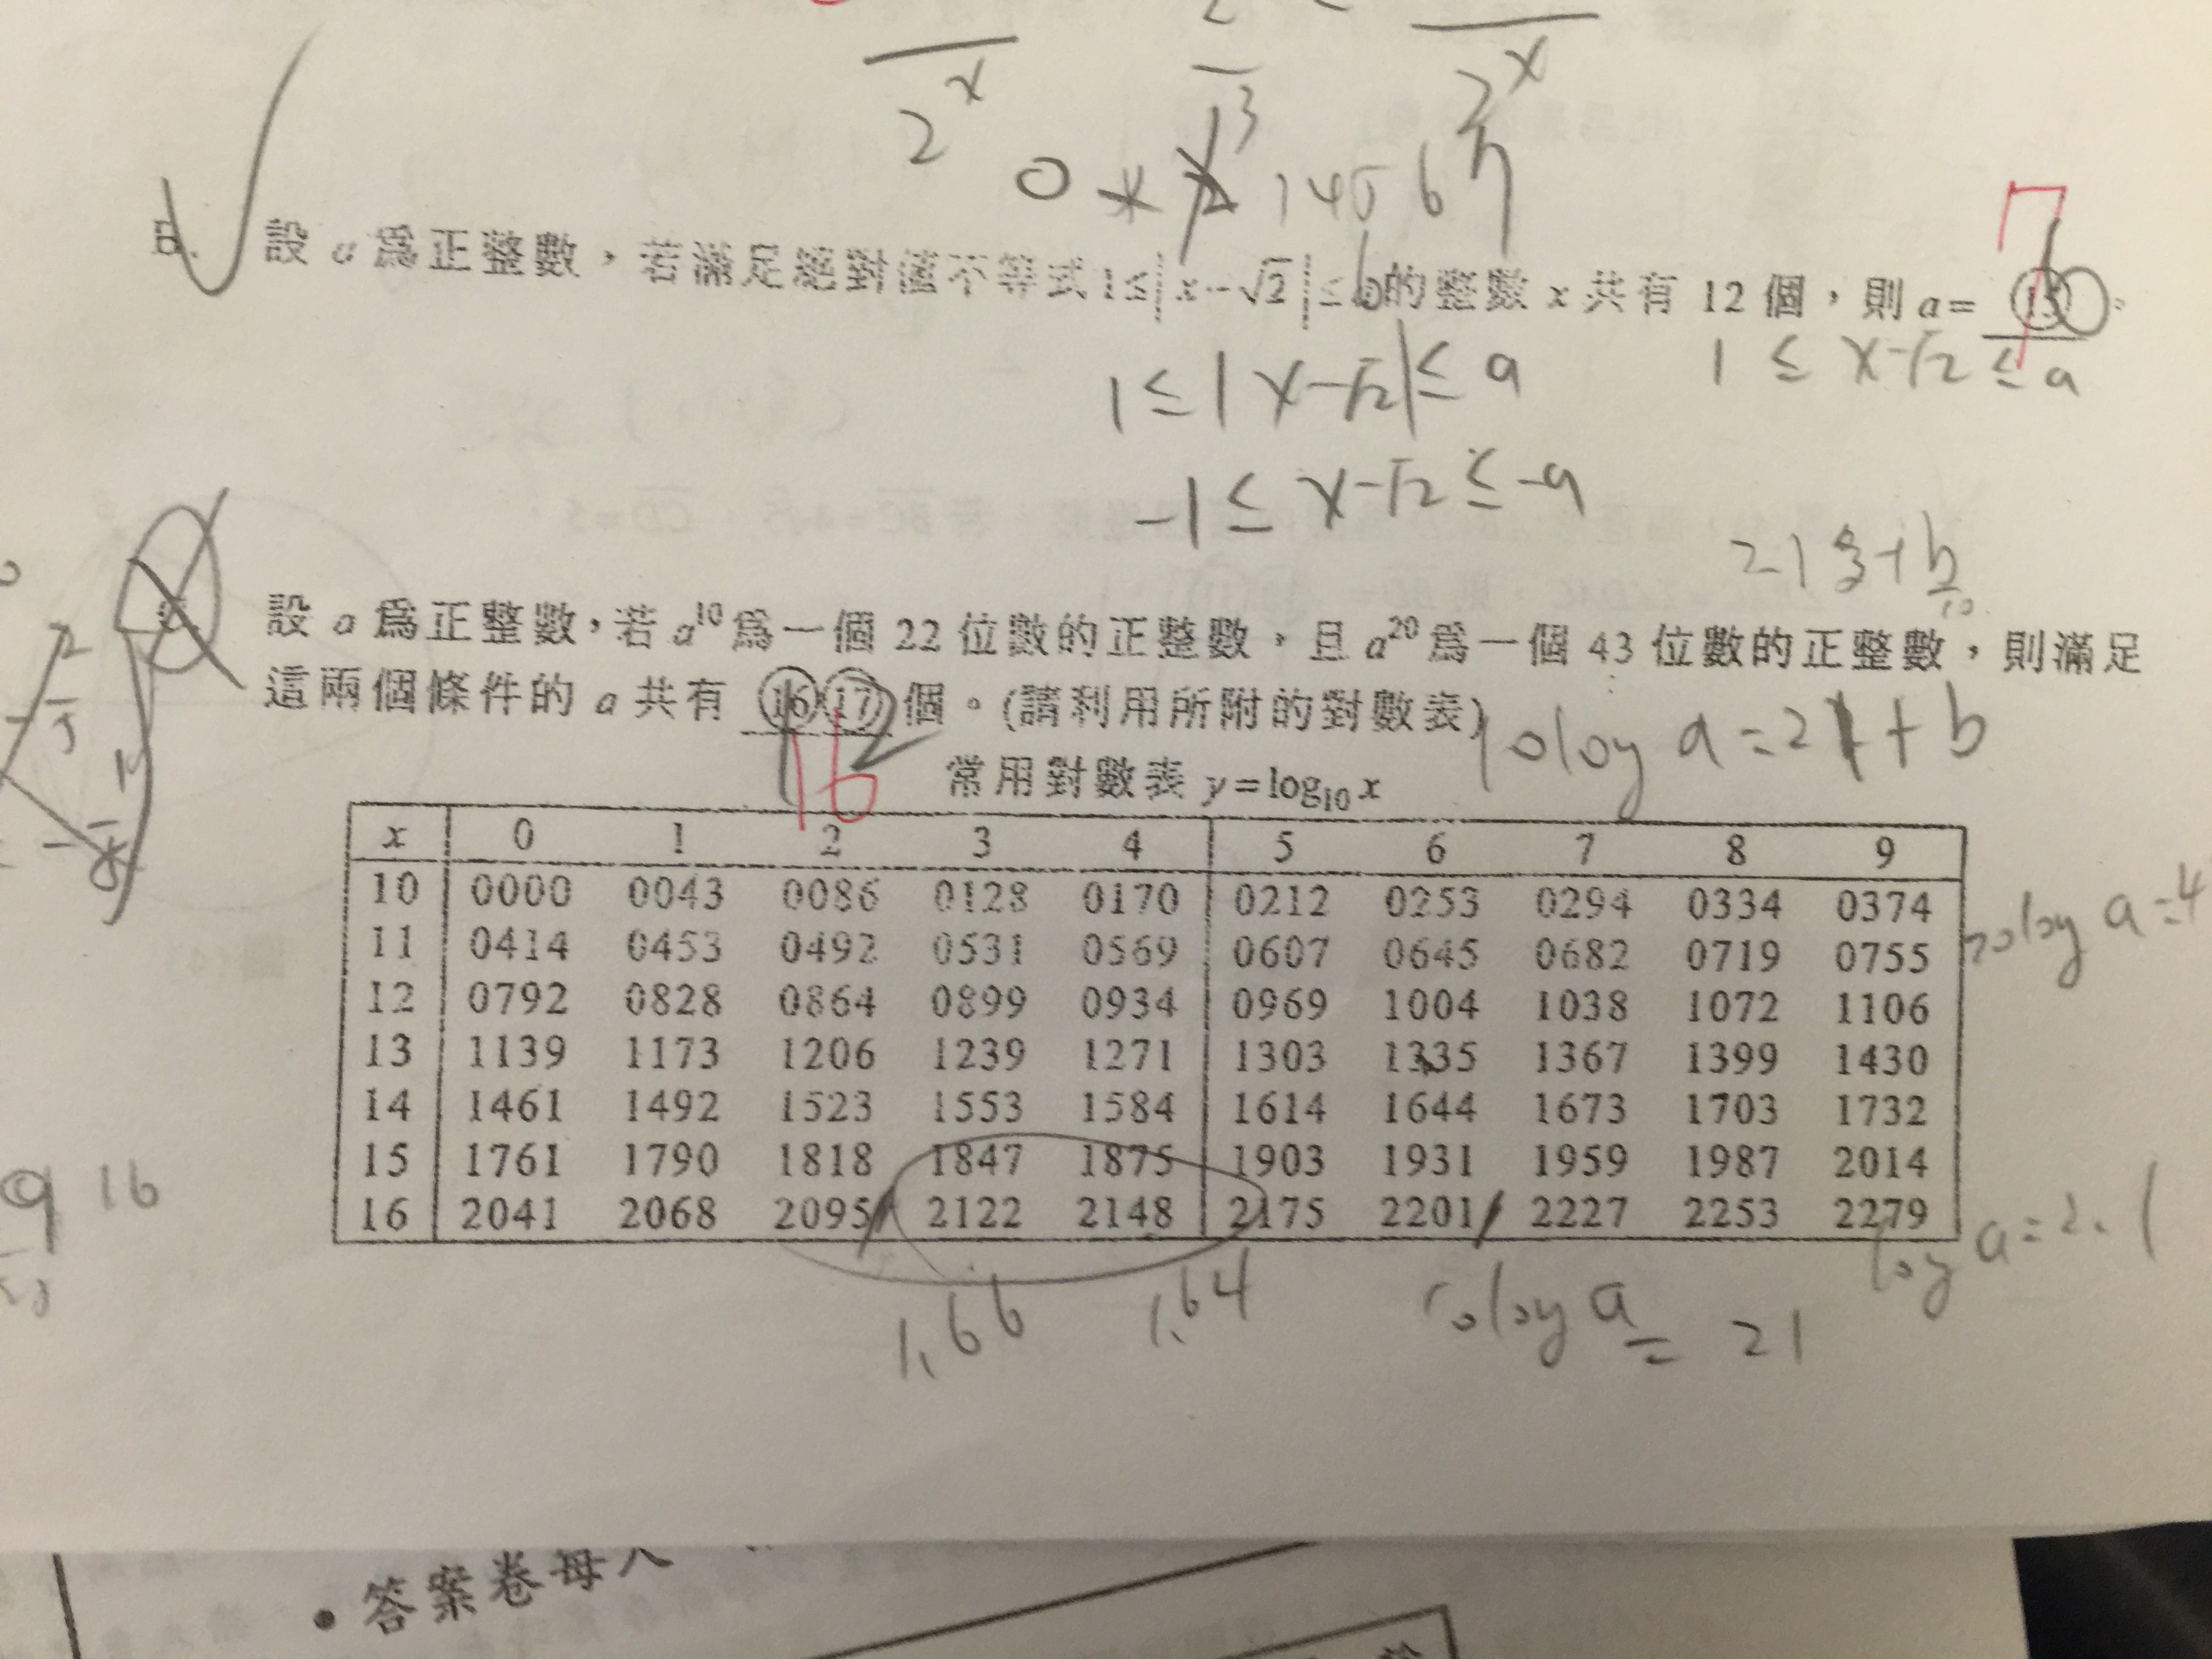 2^x 2 2^x
0 1 3 4 5 6 7
設 a 為正整數,若滿足絕對值不等式 1≤|x-√2|≤a的整數 x 共有 12 個,則 a= ⑮。
7
1≤|x-√2|≤a 1≤x-√2≤a
-1≤x-√2≤-a
設 a 為正整數,若 a^10 為一個 22 位數的正整數,且 a^20 為一個 43 位數的正整數,則滿足
這兩個條件的 a 共有 ⑯⑰ 個。(請利用所附的對數表)
16
10log a=21+b
常用對數表 y=log₁₀x
x 0 1 2 3 4 5 6 7 8 9
10 0000 0043 0086 0128 0170 0212 0253 0294 0334 0374
11 0414 0453 0492 0531 0569 0607 0645 0682 0719 0755
12 0792 0828 0864 0899 0934 0969 1004 1038 1072 1106
13 1139 1173 1206 1239 1271 1303 1335 1367 1399 1430
14 1461 1492 1523 1553 1584 1614 1644 1673 1703 1732
15 1761 1790 1818 1847 1875 1903 1931 1959 1987 2014
16 2041 2068 2095 2122 2148 2175 2201 2227 2253 2279
20log a=4
log a=2.1
9 16
1.66 1.64
10log a = 21
•答案卷每人